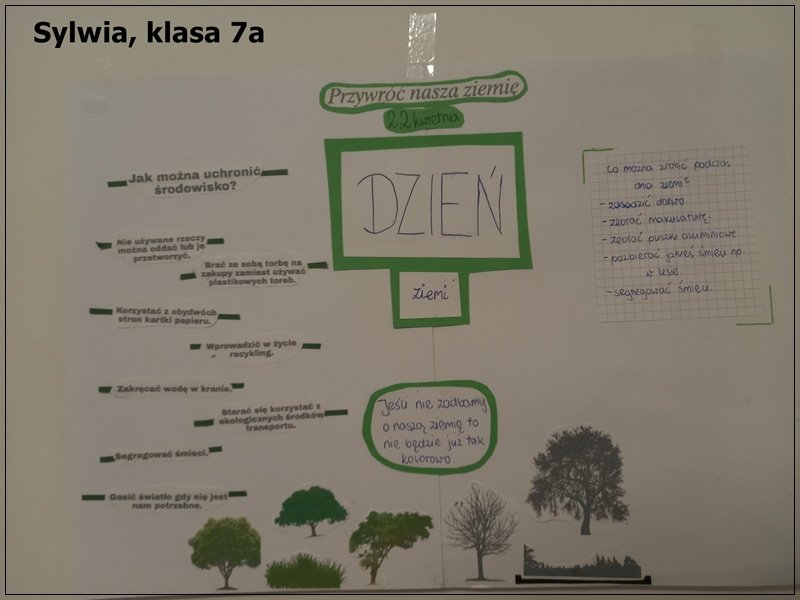 Sylwia, klasa 7a
Przywróć nasza ziemię
22 kwietnia
DZIEŃ
ziemi
Jak można uchronić
środowisko?
Nie używane rzeczy
można oddać lub je
przetworzyć.
Brać ze sobą torbę na
zakupy zamiast używać
plastikowych toreb.
Korzystać z obydwóch
stron kartki papieru.
Wprowadzić w życie
recykling.
Zakręcać wodę w kranie.
Starać się korzystać z
ekologicznych środków
transportu.
Segregować śmieci.
Gasić światło gdy nie jest
nam potrzebne.
Jeśli nie zadbamy
o naszą ziemię to
nie będzie już tak
kolorowo.
Co można zrobić podczas
dnia ziemi?
- zasadzić drzewo
- zebrać makulaturę
- zebrać puszki aluminiowe
- pozbierać jakieś śmieci np.
w lesie.
- segregować śmieci.